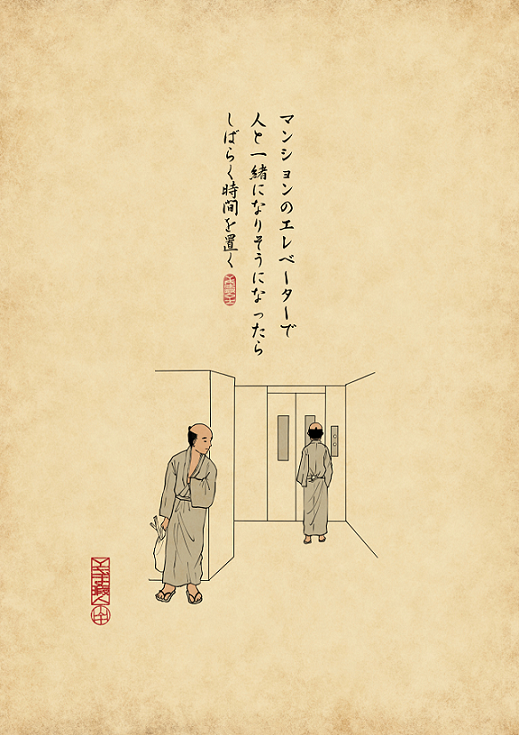 マンションのエレベーターで
人と一緒になりそうになったら
しばらく時間を置く